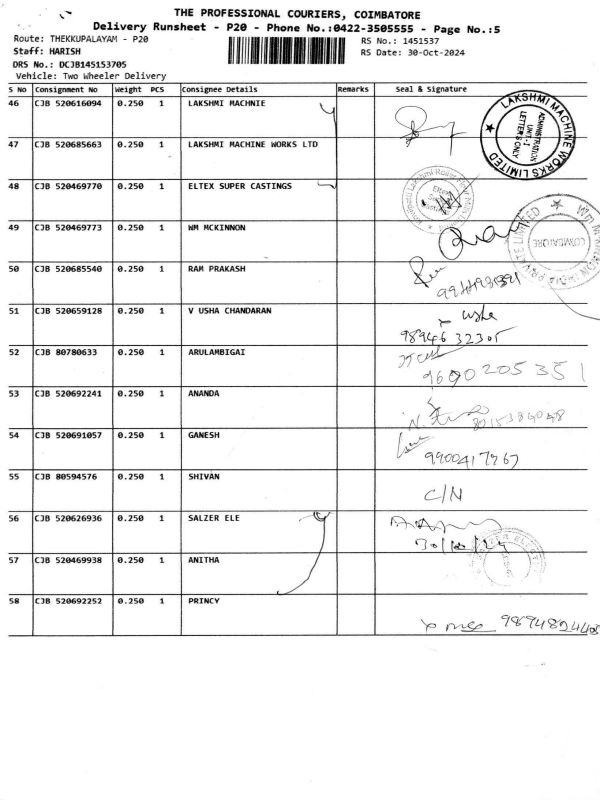 THE PROFESSIONAL COURIERS, COIMBATORE
Delivery Runsheet - P20 - Phone No.:0422-3505555 - Page No.:5
Route: THEKKUPALAYAM - P20
RS No.: 1451537
Staff: HARISH
RS Date: 30-Oct-2024
DRS No.: DCJB145153705
Vehicle: Two Wheeler Delivery
S No Consignment No Weight PCS Consignee Details Remarks Seal & Signature
46 CJB 520616094 0.250 1 LAKSHMI MACHNIE
LAKSHMI MACHINE WORKS LIMITED
ADMINISTRATION
UNIT-I
LETTERS ONLY
47 CJB 520685663 0.250 1 LAKSHMI MACHINE WORKS LTD
48 CJB 520469770 0.250 1 ELTEX SUPER CASTINGS
49 CJB 520469773 0.250 1 WM MCKINNON
COIMBATORE
50 CJB 520685540 0.250 1 RAM PRAKASH
51 CJB 520659128 0.250 1 V USHA CHANDARAN
usha
98946 32305
52 CJB 80780633 0.250 1 ARULAMBIGAI
9600205351
53 CJB 520692241 0.250 1 ANANDA
54 CJB 520691057 0.250 1 GANESH
9900417767
55 CJB 80594576 0.250 1 SHIVAN
C/N
56 CJB 520626936 0.250 1 SALZER ELE
30/10/24
57 CJB 520469938 0.250 1 ANITHA
58 CJB 520692252 0.250 1 PRINCY